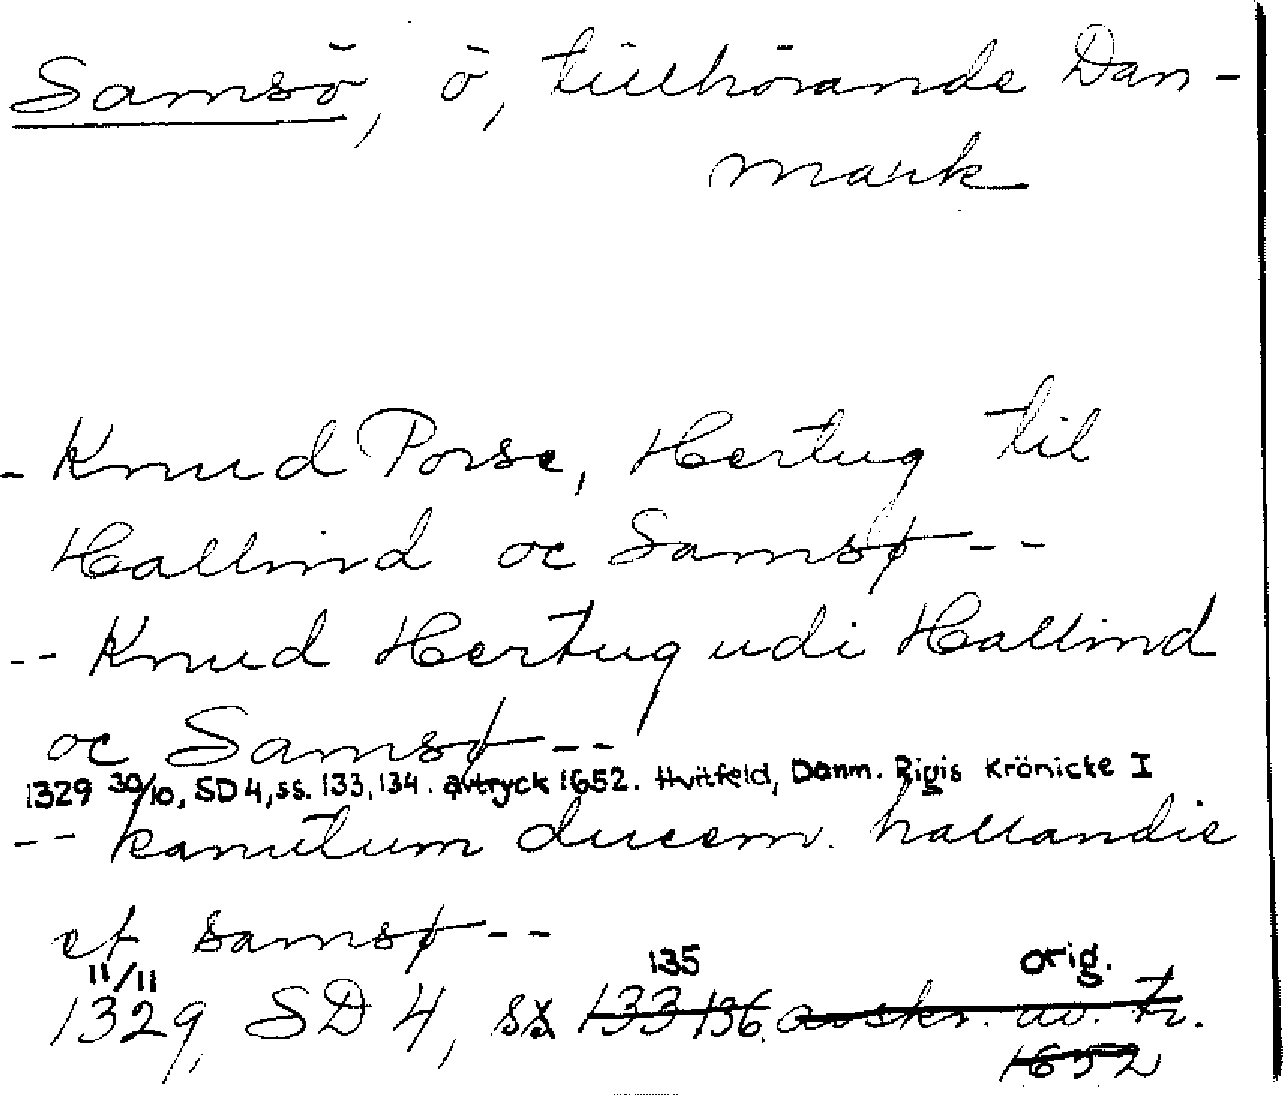 Samsö, ö, tillhörande Dan-
mark
- Knud Porse, Hertug til
Hallind oc Samsø --
-- Knud Hertug udi Hallind
oc Samsø --
1329 30/10, SD 4, ss. 133, 134. avtryck 1652. Hvitfeld, Danm. Rigis Krönicke I
-- kanutum ducem. hallandie
et samsø --
11/11 135 orig.
1329, SD 4, ss 133 136. avskr. av. tr.
1652